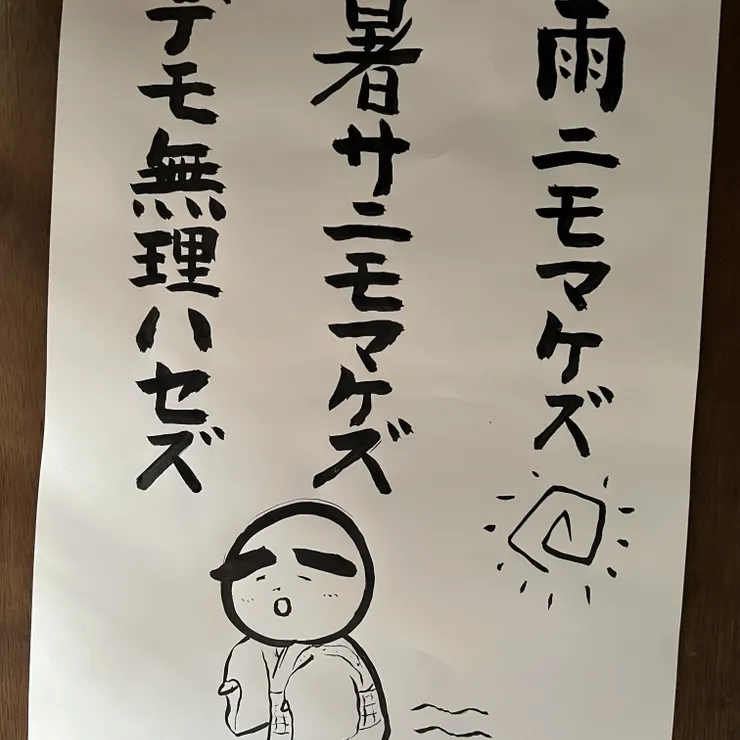 雨ニモマケズ
暑サニモマケズ
デモ無理ハセズ